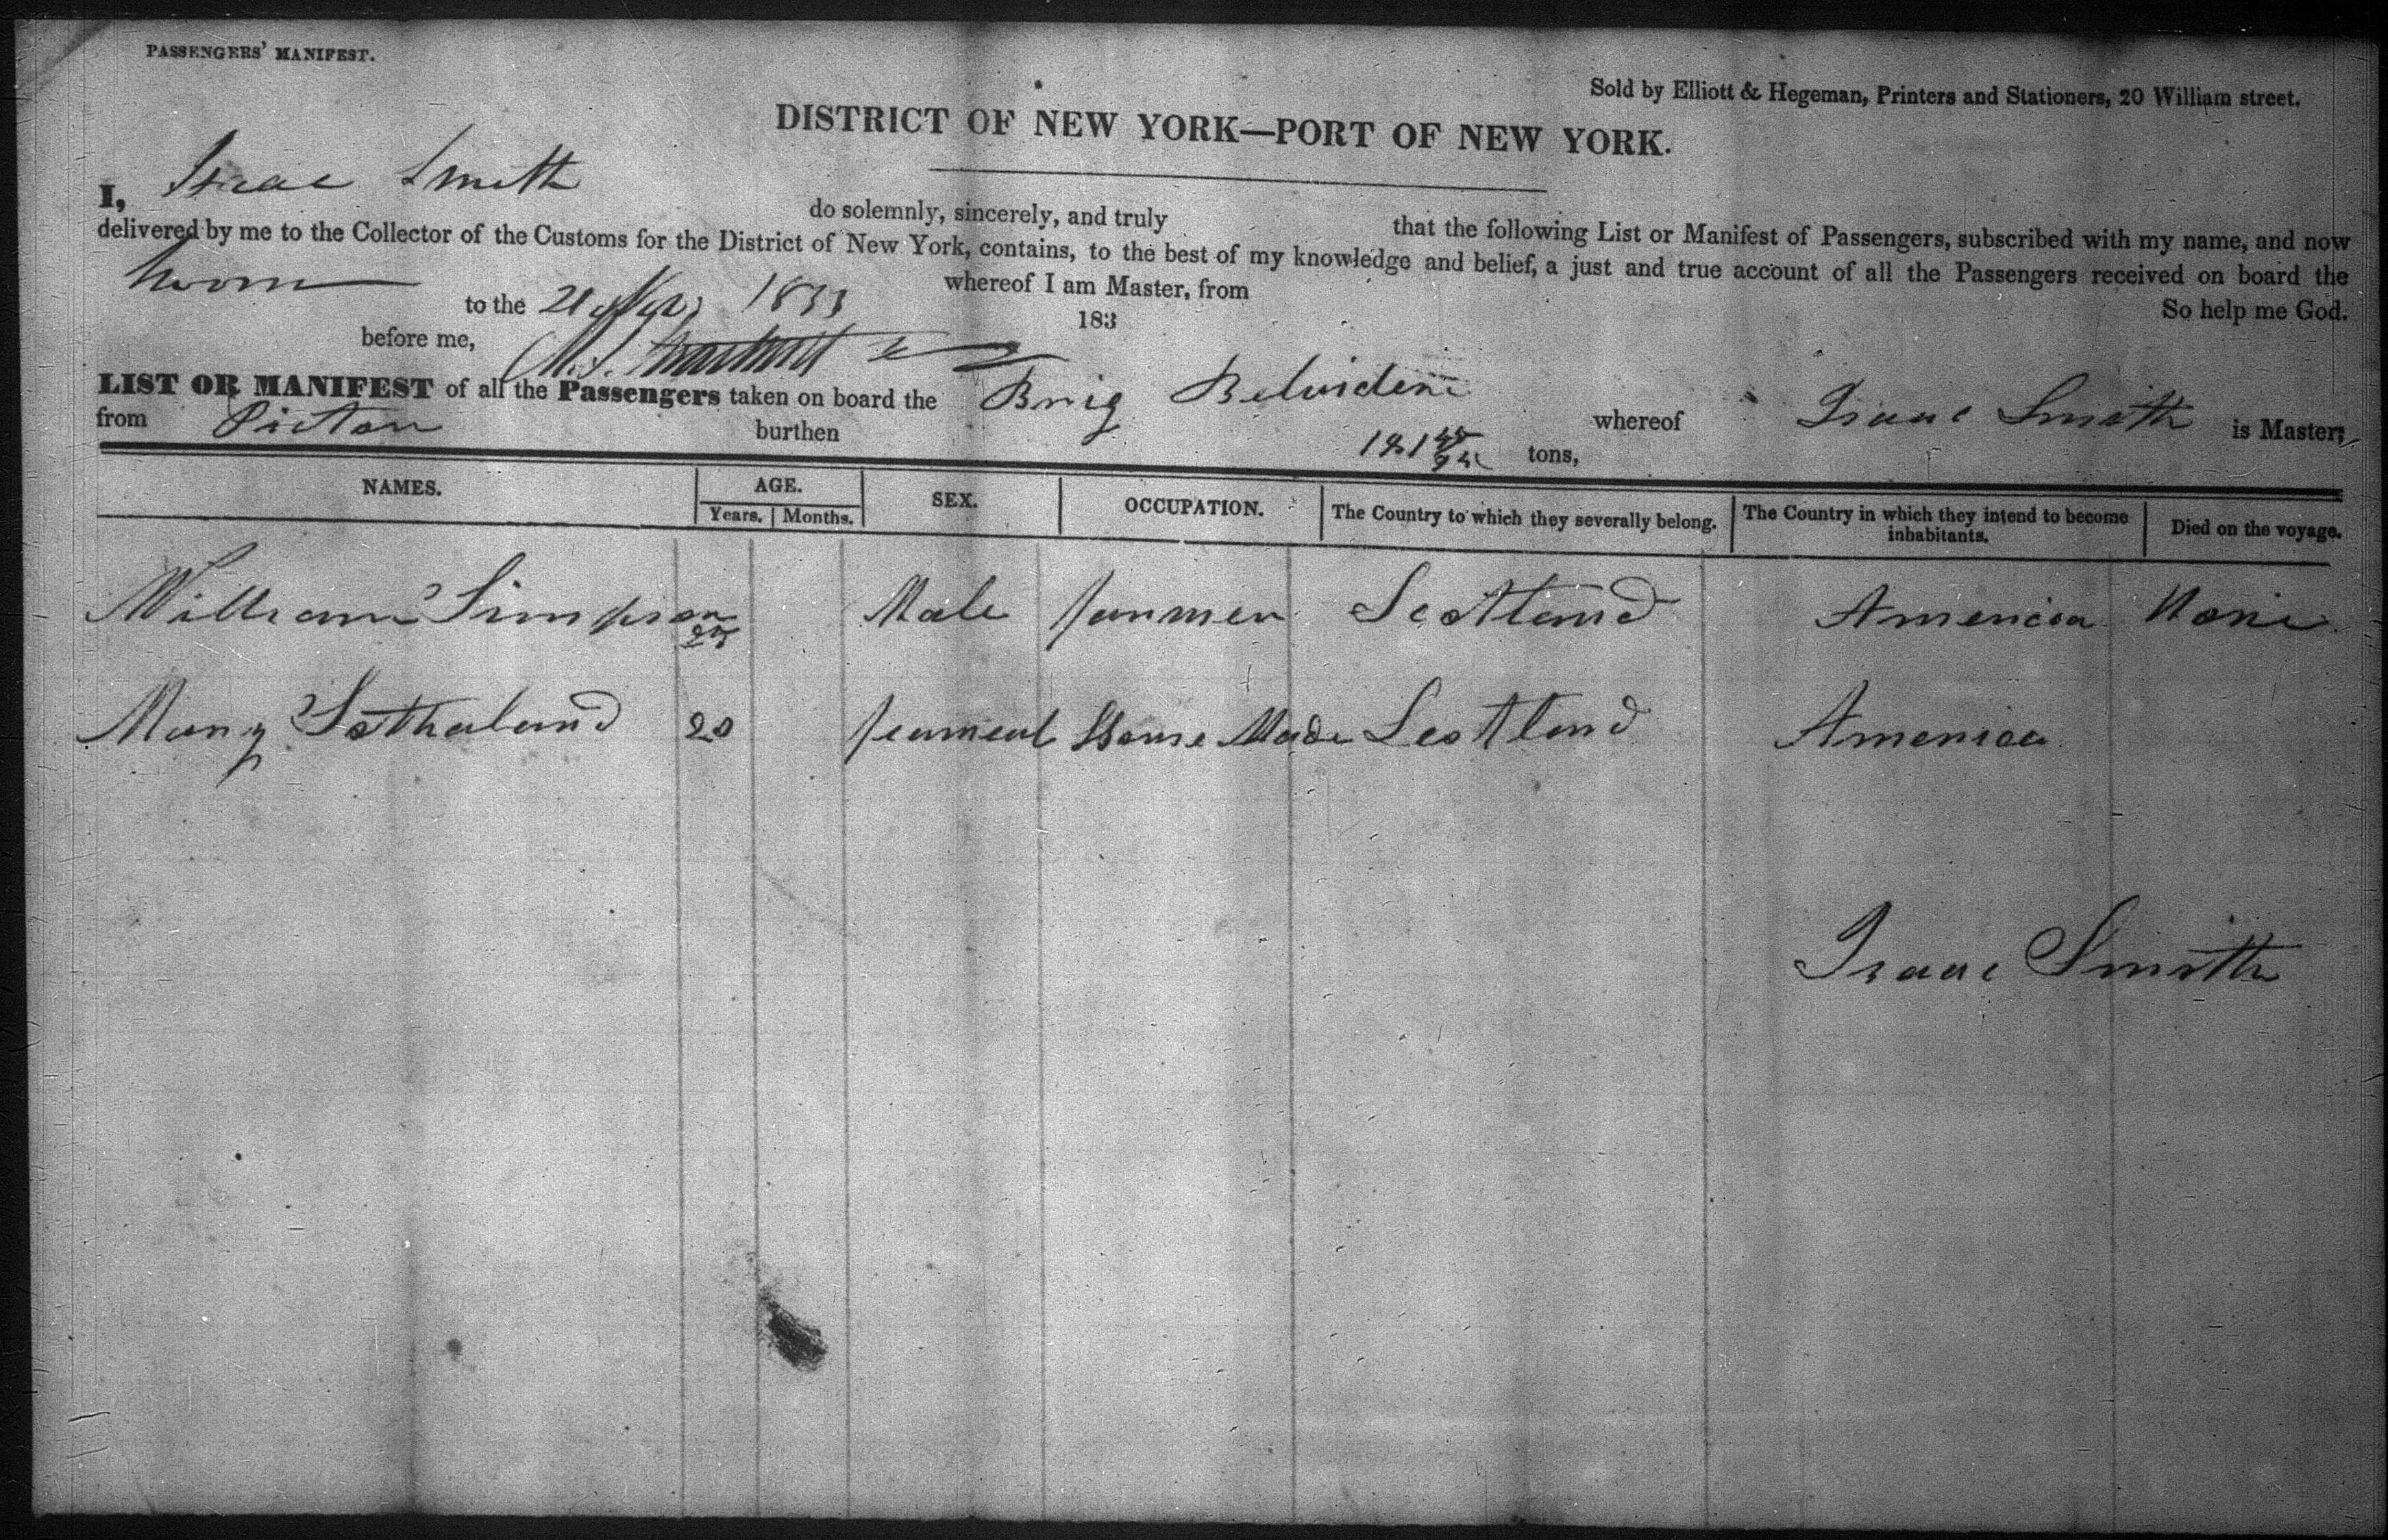 PASSENGERS' MANIFEST.
Sold by Elliott & Hegeman, Printers and Stationers, 20 William street.
DISTRICT OF NEW YORK—PORT OF NEW YORK.
I, Isaac Smith do solemnly, sincerely, and truly that the following List or Manifest of Passengers, subscribed with my name, and now
delivered by me to the Collector of the Customs for the District of New York, contains, to the best of my knowledge and belief, a just and true account of all the Passengers received on board the
whereof I am Master, from So help me God.
Sworn to the 21 1833 183
before me,
LIST OR MANIFEST of all the Passengers taken on board the Brig Belvidere whereof Isaac Smith is Master,
from Picton burthen 181 tons,
NAMES. AGE. SEX. OCCUPATION. The Country to which they severally belong. The Country in which they intend to become inhabitants. Died on the voyage.
Years. Months.
William Simpson Male farmer Scotland America None
Mary Sotherland 20 feameal House Made Scotland America
Isaac Smith